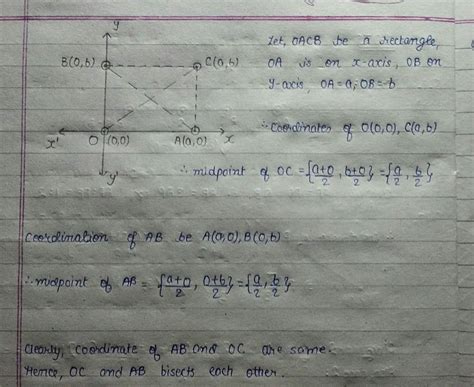 y
B(0,b)
C(a,b)
O
(0,0)
A(a,0)
x
x'
y'
Let, OACB be a rectangle,
OA is on x-axis, OB on
y-axis, OA=a, OB=b
∴ Coordinates of O(0,0), C(a,b)
∴ midpoint of OC = {a+0/2, b+0/2} = {a/2, b/2}
Coordination of AB be A(a,0), B(0,b)
∴ midpoint of AB = {a+0/2, 0+b/2} = {a/2, b/2}
Clearly, Coordinate of AB and OC are same.
Hence, OC and AB bisects each other.